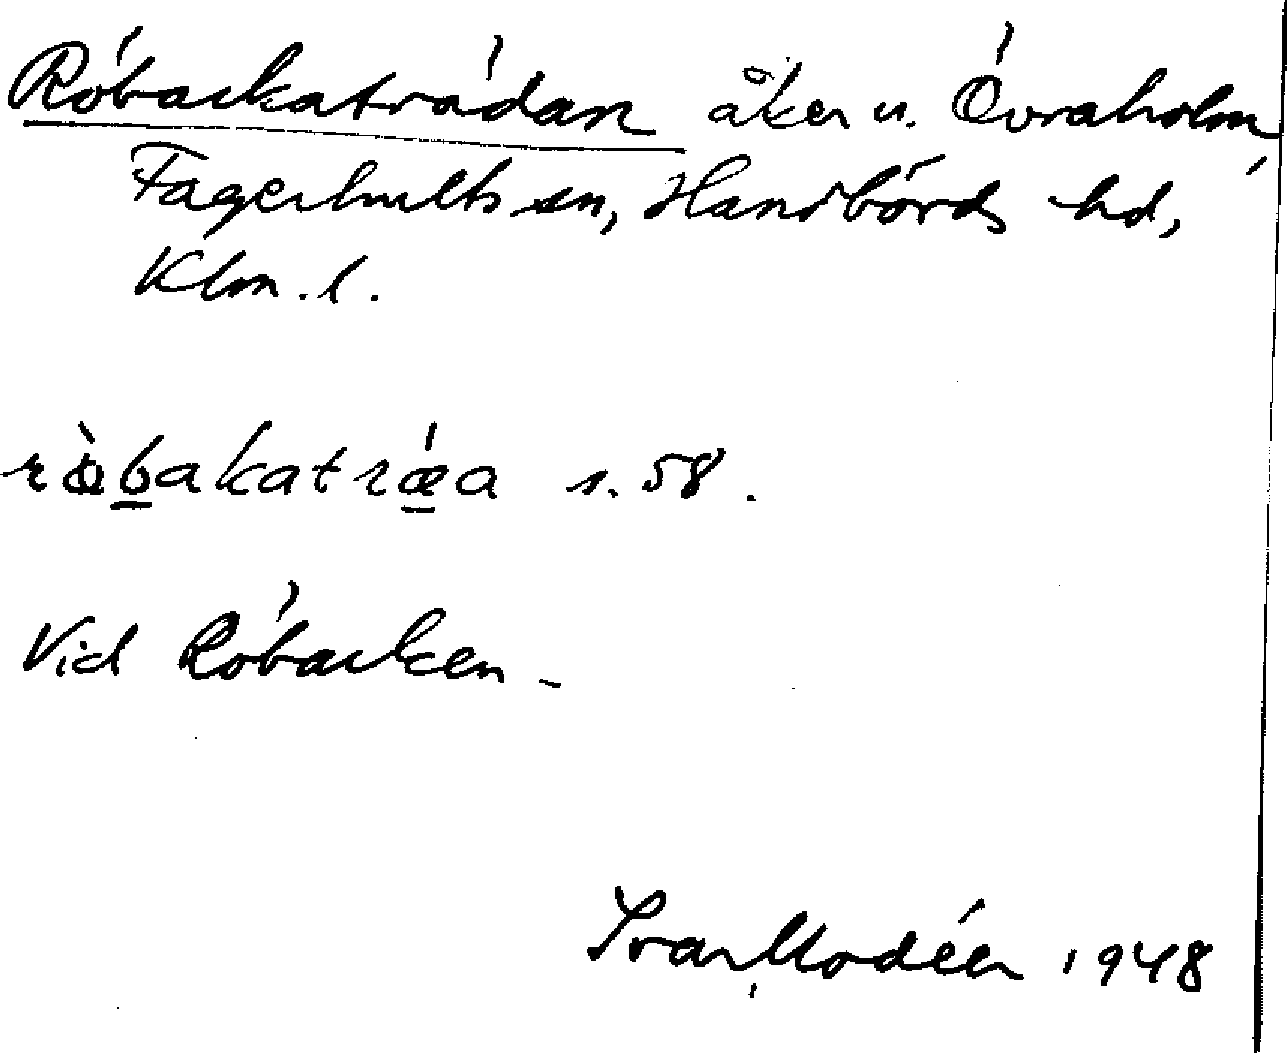 Röbackaträdan åker u. Övraholm,
Fagerhults sn, Handbörds hd,
Klm. l.
s. 58.
Vid Röbacken.
Ivar Modéer 1948